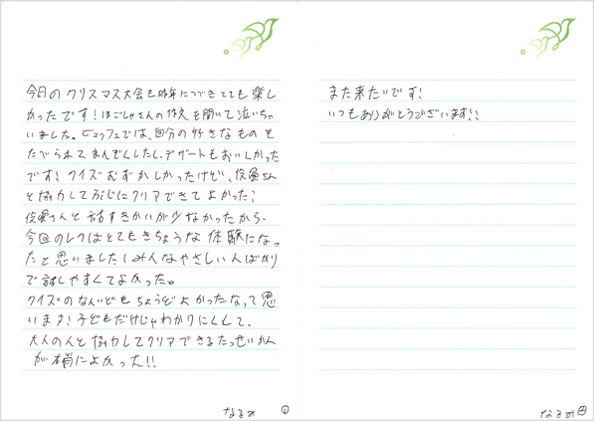 今日のクリスマス大会も昨年につづきとても楽し
かったです!ほごしゃさんの作文を聞いて泣いちゃ
いました。ビュッフェでは、自分の好きなものを
たべられてまんぞくしたし、デザートもおいしかった
です!クイズむずかしかったけど、役員さん
と協力して ぶじにクリアできてよかった!
役員さんと話すきかいが少なかったから、
今回のレクはとてもきちょうな体験になっ
たと思いました!みんなやさしい人ばかり
で話しやすくてよかった。
クイズのなんいどもちょうどよかったなって思
います!子どもだけじゃわかりにくくて、
大人の人と協力してクリアできるたっせいかん
が本当によかった!!
なるみ ①
また来たいです!
いつもありがとうございます!!
なるみ